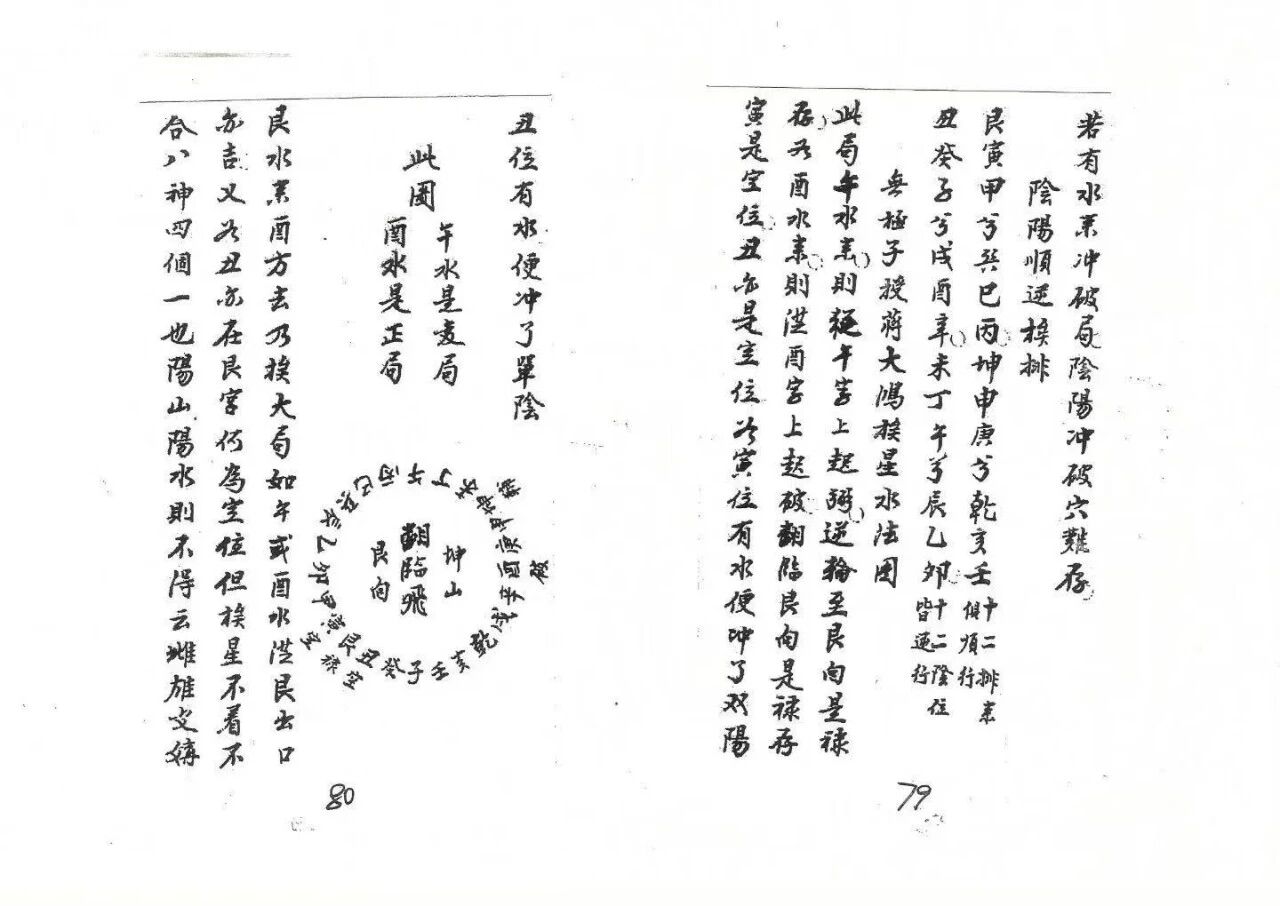 若有水來冲破局陰陽冲破穴難存
陰陽順逆挨排
艮寅甲兮巽巳丙坤申庚兮乾亥壬十二排來俱順行
丑癸子兮戌酉辛未丁午兮辰乙卯十二陰位皆逆行
無極子授蔣大鴻挨星水法图
此局午水來則從午字上起弼逆輪至艮向是祿
存如酉水來則從酉字上起破翻臨艮向是祿存
寅是空位丑亦是空位如寅位有水便冲了双陽
79
丑位有水便冲了單陰
此图
午水是变局
酉水是正局
坤山
翻臨飛
艮向
壬子癸丑艮寅甲卯乙辰巽巳丙午丁未坤申庚酉辛戌乾亥
輔
破
空祿空
艮水來酉方去乃挨大局如午或酉水從艮出口
亦吉又如丑亦在艮宮何為空位但挨星不着不
合八神四個一也陽山陽水則不得云雌雄交媾
80